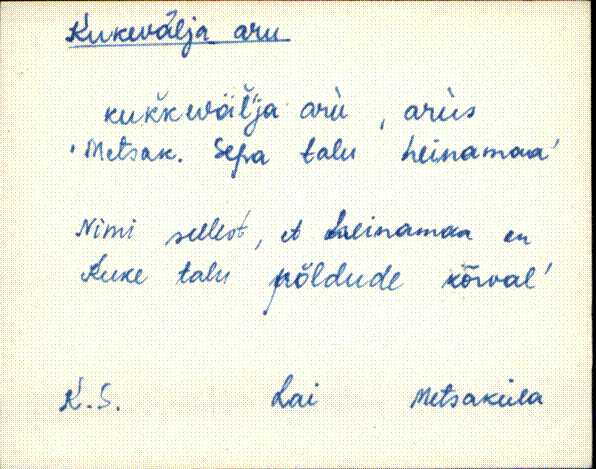 Kukevälja aru
kuk̆kevälja aru̇, aru̇s
'Metsak. Sepa talu heinamaa'
Nimi sellest, et heinamaa on
Kuke talu põldude kõrval'
K.S. Lai Metsaküla